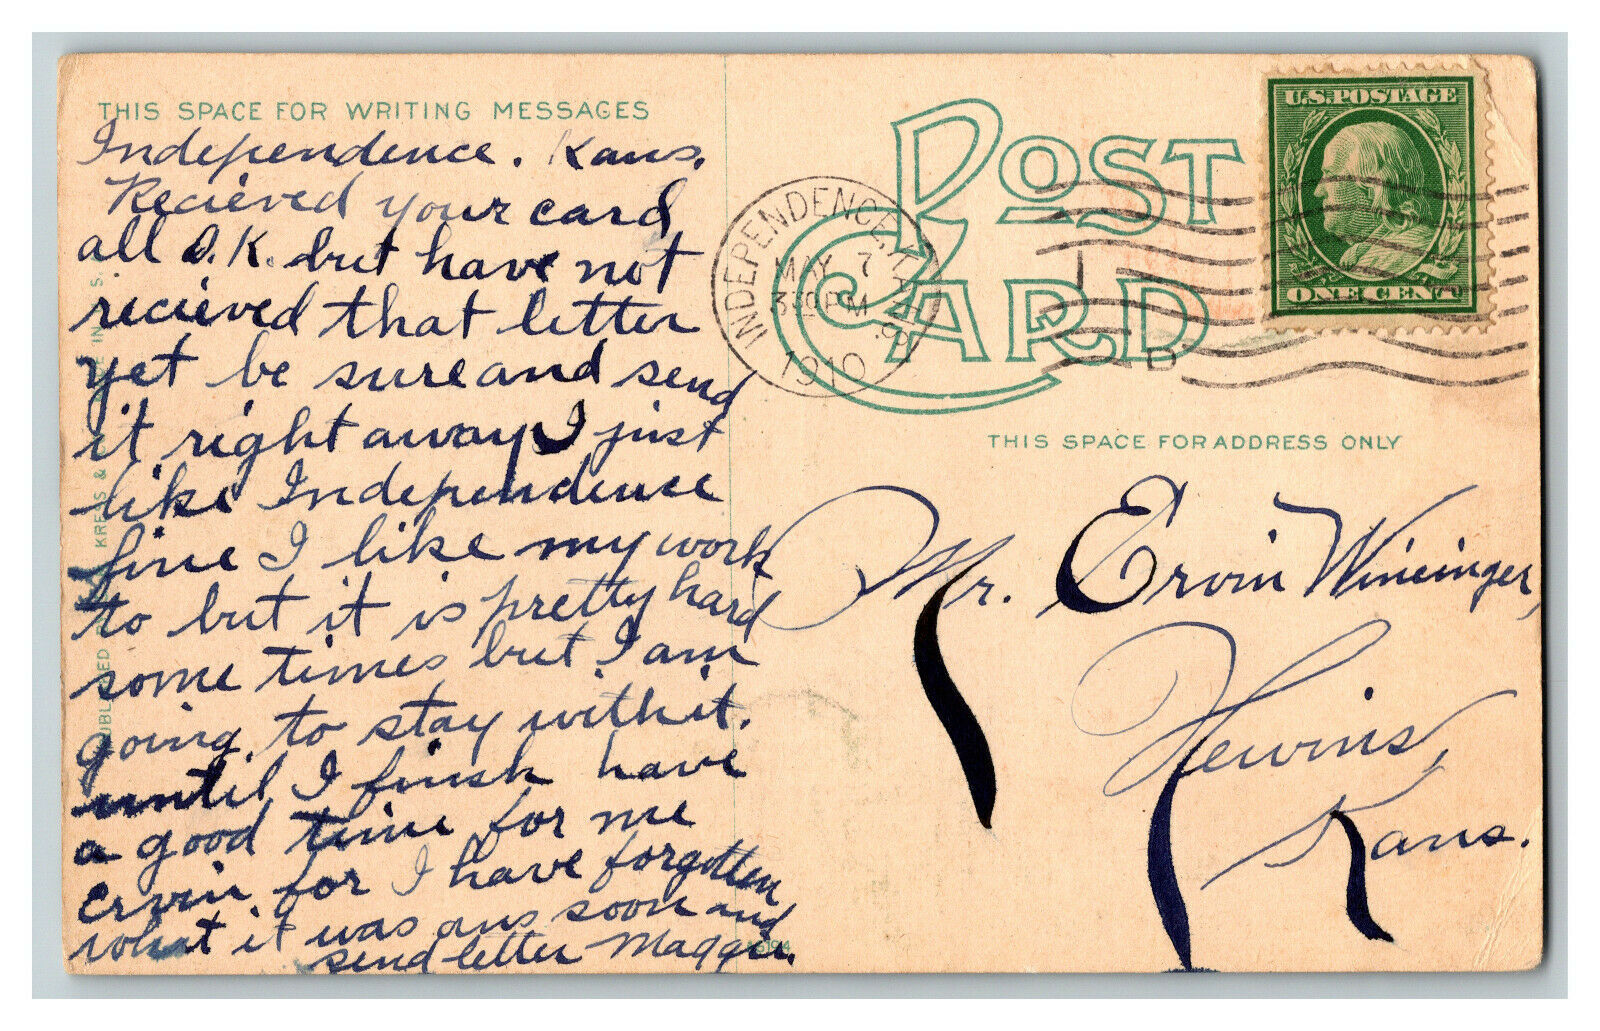 THIS SPACE FOR WRITING MESSAGES
Independence. Kans.
Recieved your card
all O.K. but have not
recieved that letter
yet be sure and send
it right away I just
like Independence
fine I like my work
to but it is pretty hard
some times but I am
going to stay with it.
until I finish have
a good time for me
Ervin for I have forgotten
what it was ans soon and
send letter Maggie.
POST
CARD
INDEPENDENCE, KANS.
MAY 7
3 30 PM
1910
D
U.S. POSTAGE
ONE CENT
THIS SPACE FOR ADDRESS ONLY
Mr. Ervin Wineinger,
Hewins,
Kans.
PUBLISHED
KRESS &
IN